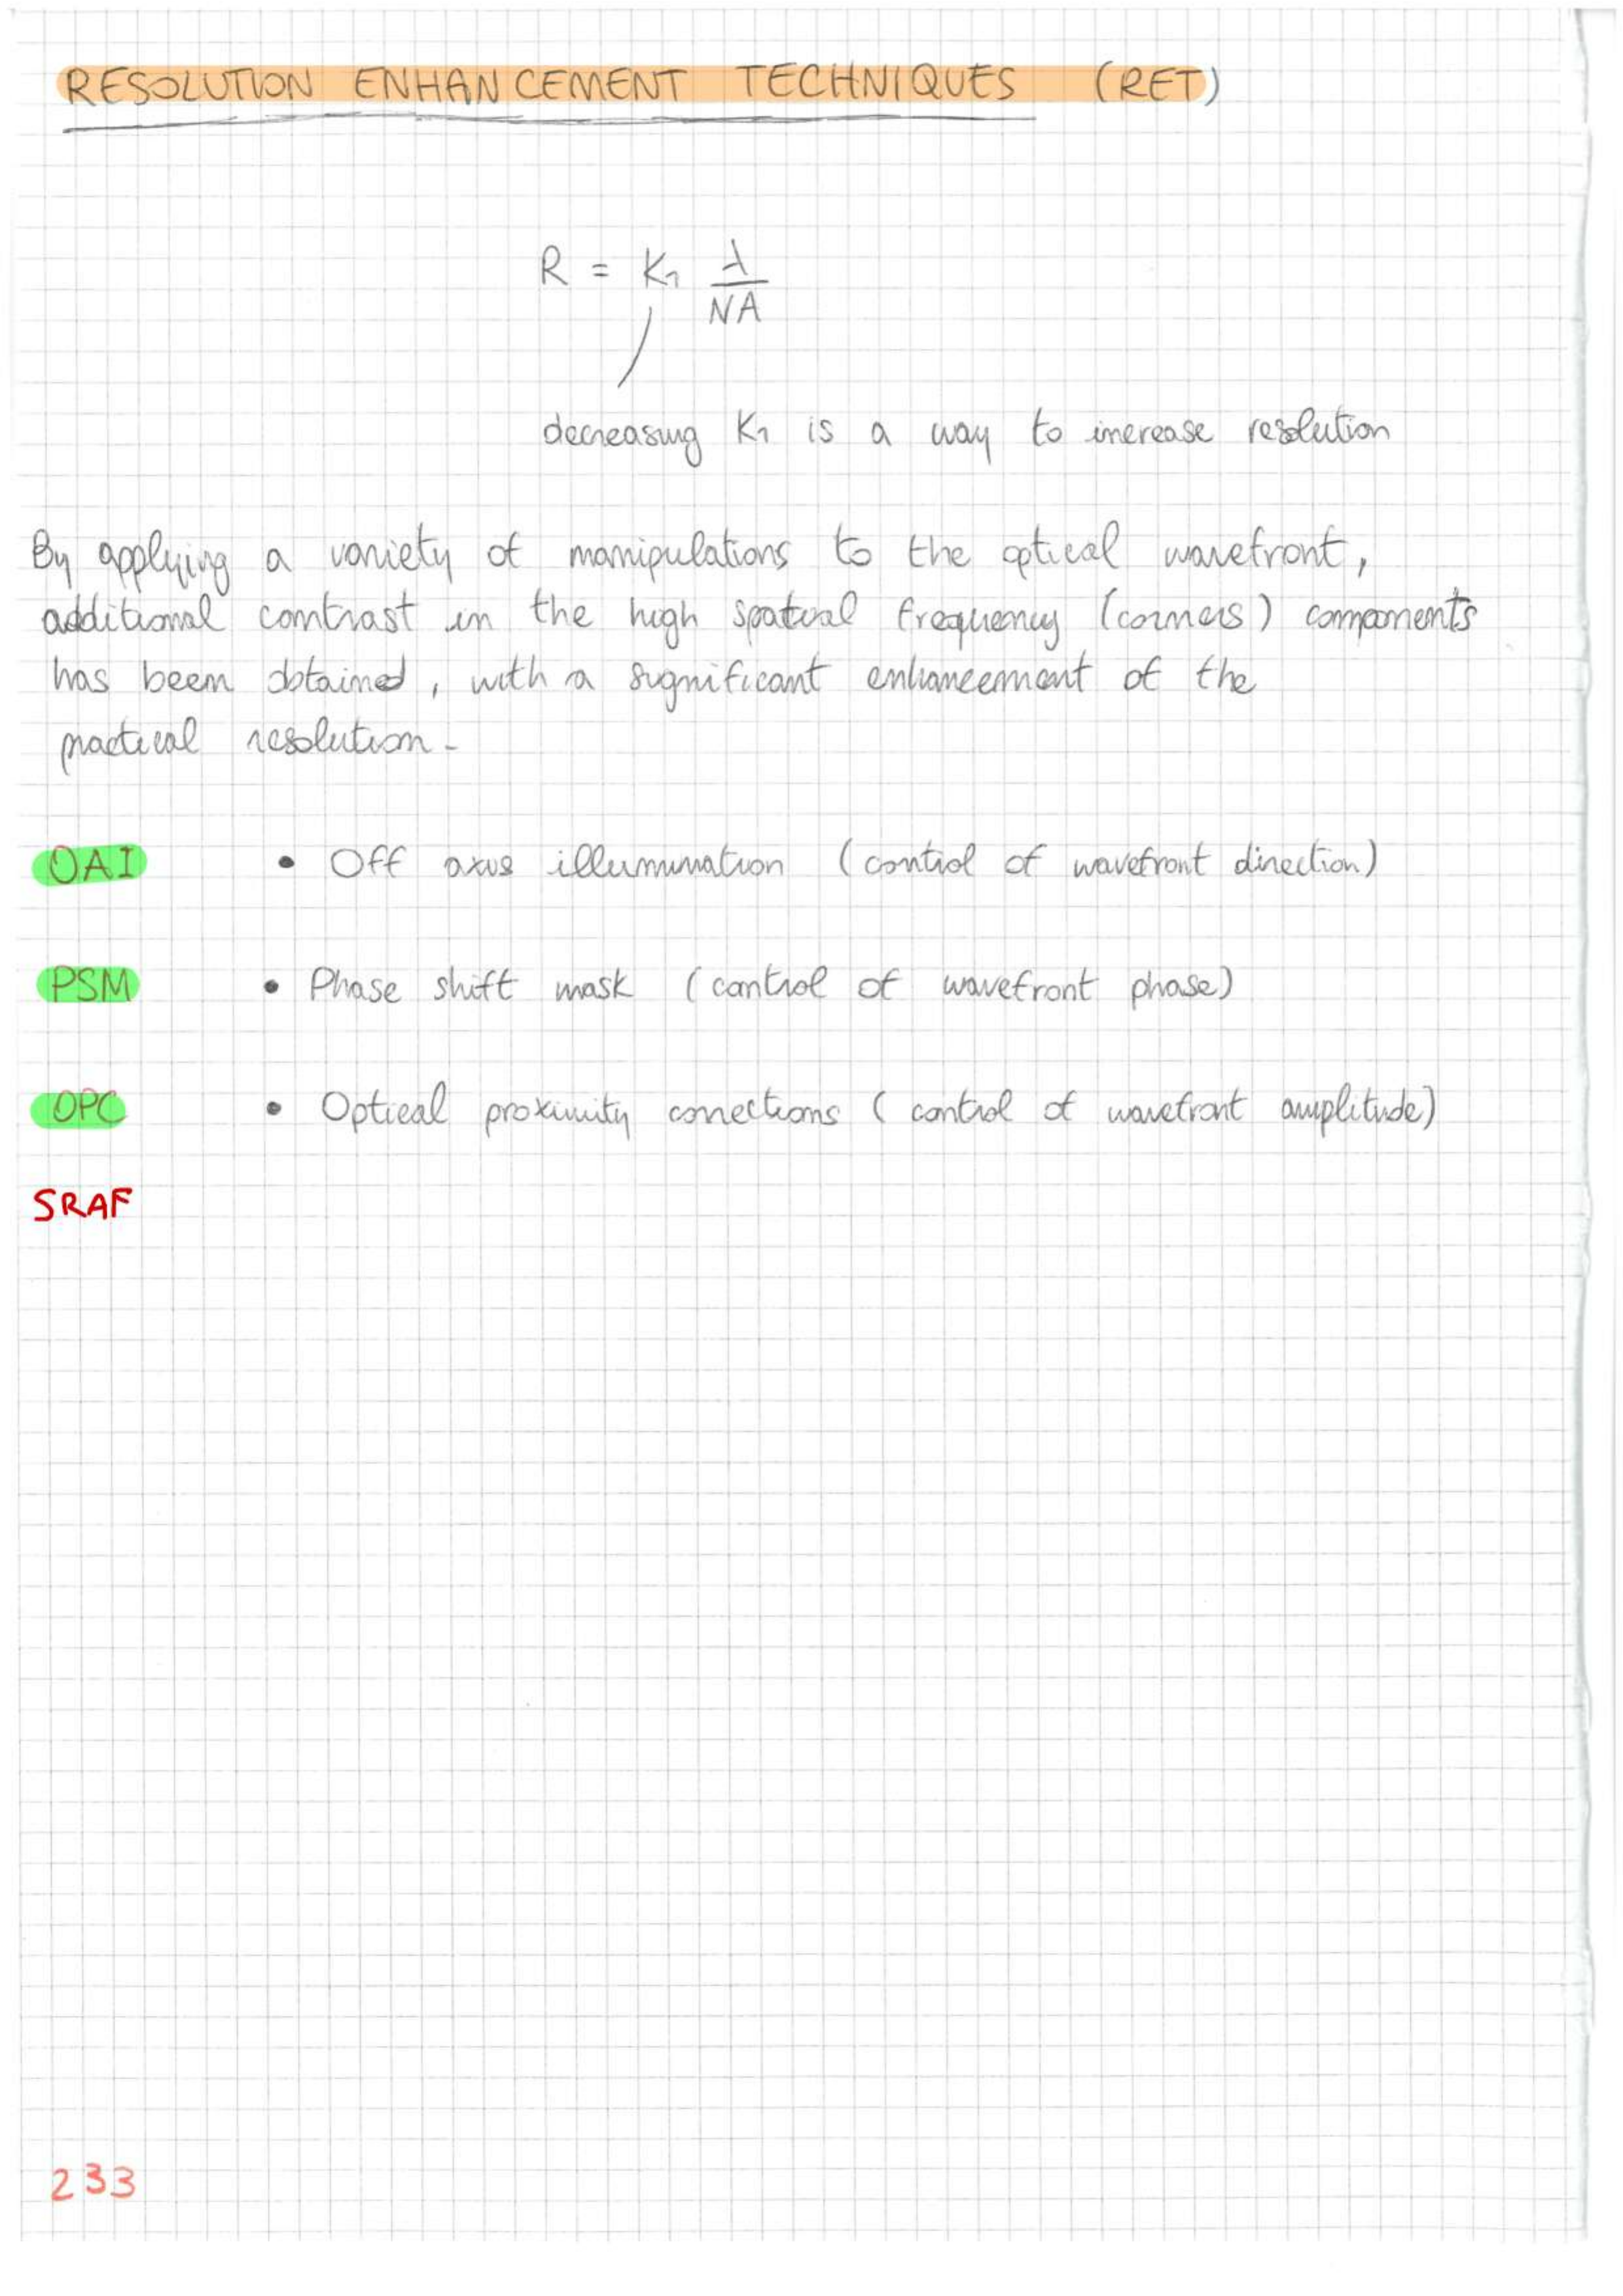 RESOLUTION ENHANCEMENT TECHNIQUES (RET)
R = K₁ λ/NA
decreasing K₁ is a way to increase resolution
By applying a variety of manipulations to the optical wavefront,
additional contrast in the high spatial frequency (corners) components
has been obtained, with a significant enhancement of the
practical resolution-
OAI • Off axis illumination (control of wavefront direction)
PSM • Phase shift mask (control of wavefront phase)
OPC • Optical proximity corrections (control of wavefront amplitude)
SRAF
233